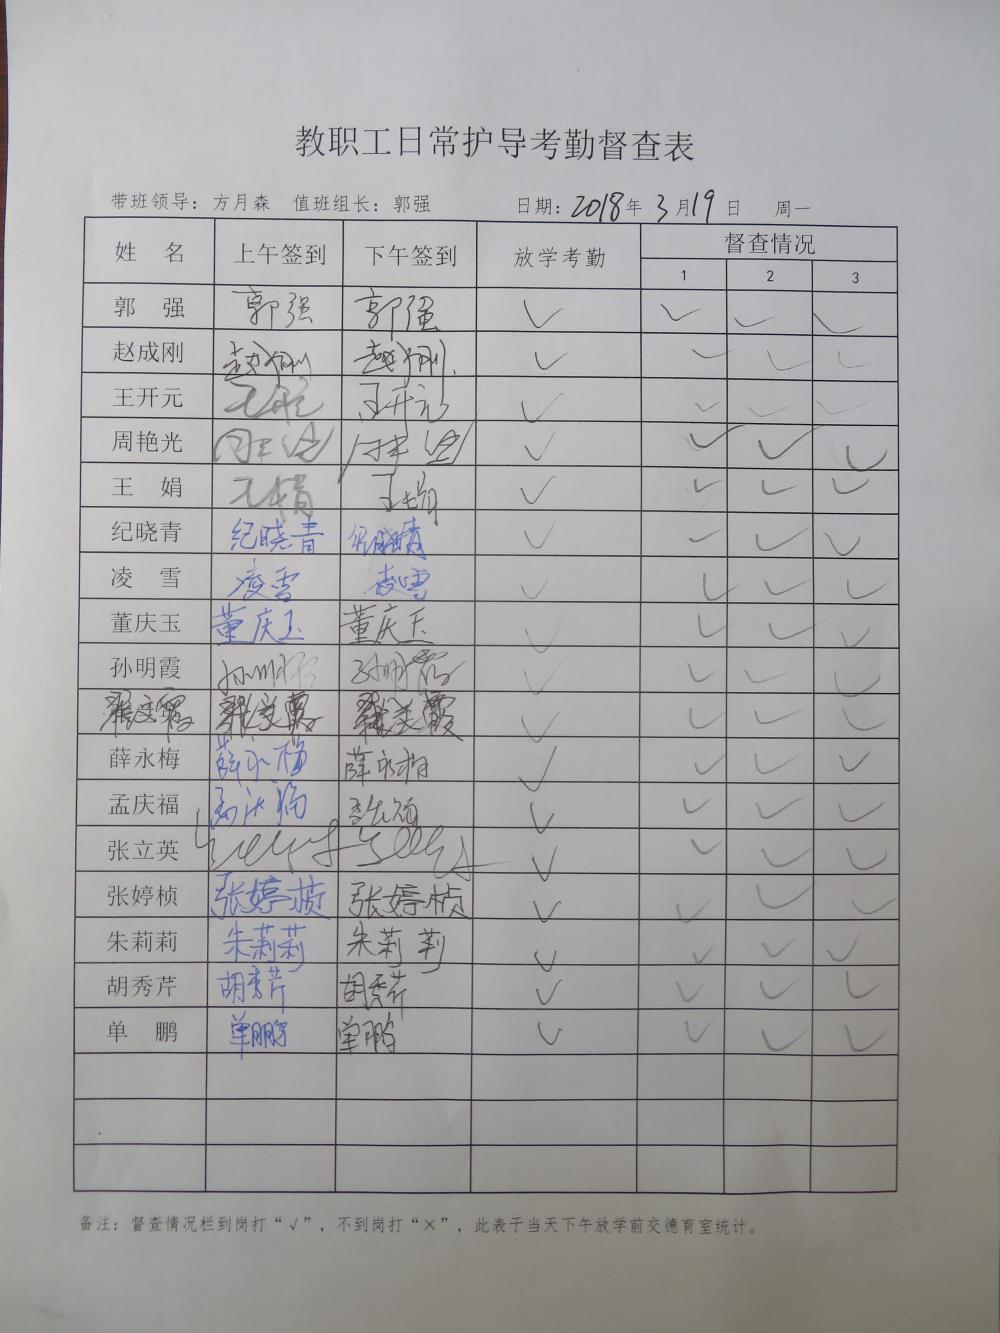 教职工日常护导考勤督查表
带班领导：方月森 值班组长：郭强 日期：2018年3月19日 周一
姓 名 上午签到 下午签到 放学考勤 督查情况
1 2 3
郭 强 郭强 郭强 ✓ ✓ ✓ ✓
赵成刚 赵成刚 赵成刚 ✓ ✓ ✓ ✓
王开元 王开元 ✓ ✓ ✓ ✓
周艳光 ✓ ✓ ✓ ✓
王 娟 王娟 王娟 ✓ ✓ ✓ ✓
纪晓青 纪晓青 纪晓晴 ✓ ✓ ✓ ✓
凌 雪 凌雪 凌雪 ✓ ✓ ✓ ✓
董庆玉 董庆玉 董庆玉 ✓ ✓ ✓ ✓
孙明霞 孙明霞 孙明霞 ✓ ✓ ✓ ✓
翟文霞 翟文霞 翟文霞 ✓ ✓ ✓ ✓
薛永梅 薛永梅 薛永梅 ✓ ✓ ✓ ✓
孟庆福 孟庆福 ✓ ✓ ✓ ✓
张立英 ✓ ✓ ✓ ✓
张婷桢 张婷桢 张婷桢 ✓ ✓ ✓ ✓
朱莉莉 朱莉莉 朱莉莉 ✓ ✓ ✓ ✓
胡秀芹 胡秀芹 胡秀芹 ✓ ✓ ✓ ✓
单 鹏 单鹏 单鹏 ✓ ✓ ✓ ✓
备注：督查情况栏到岗打“√”，不到岗打“×”，此表于当天下午放学前交德育室统计。